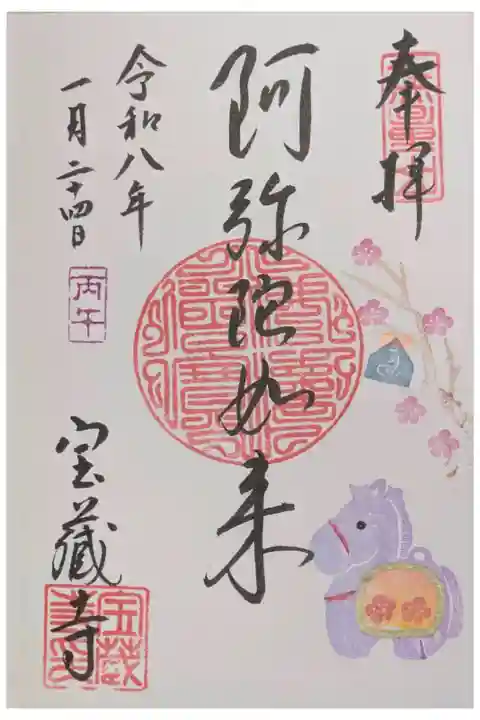 奉拝
阿弥陀如来
令和八年
一月二十四日
丙午
宝蔵寺